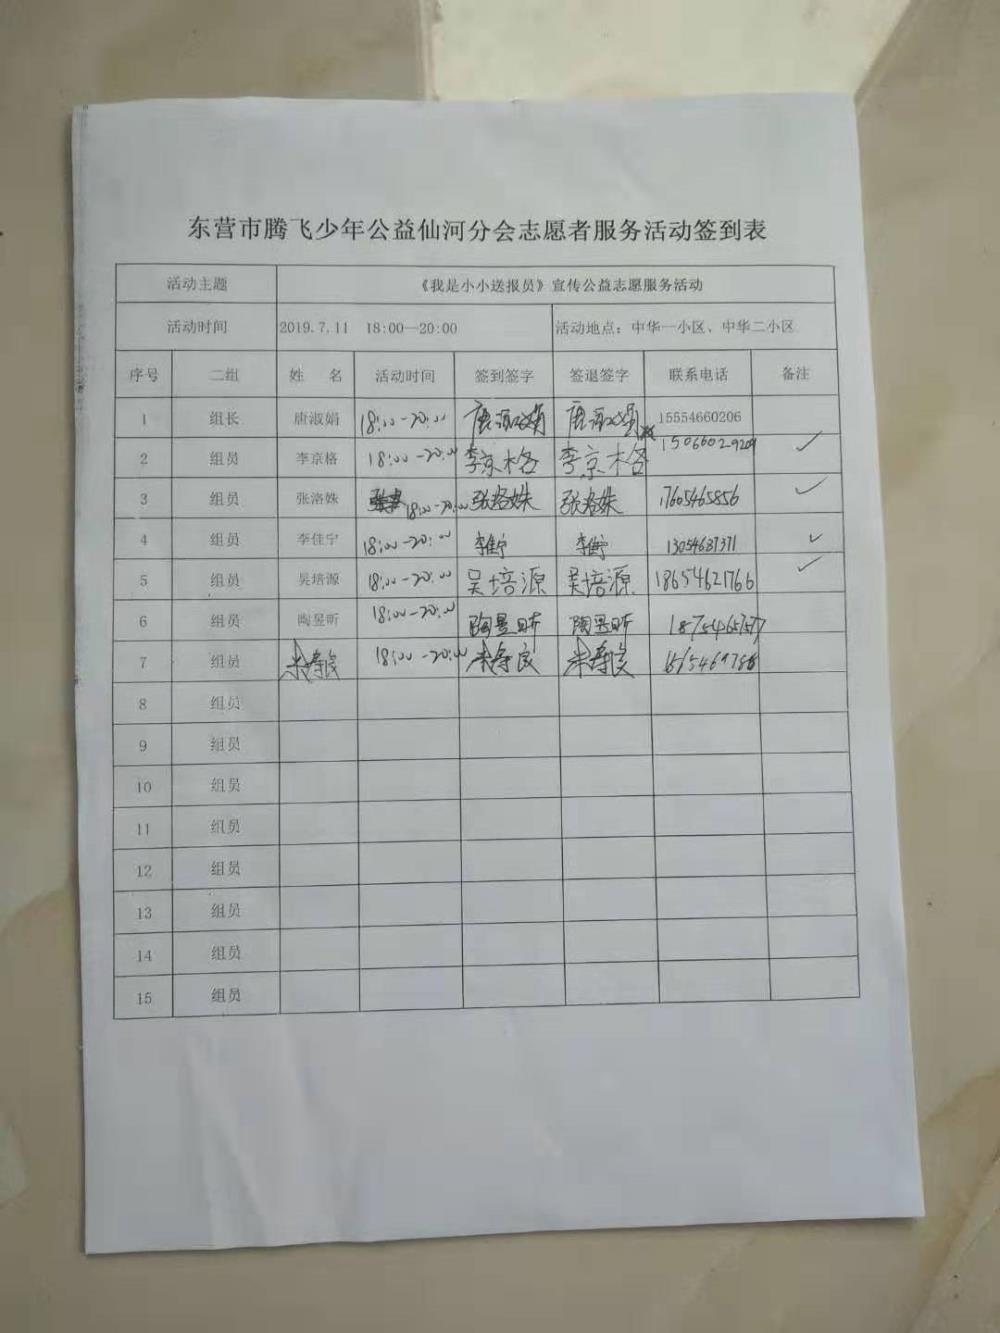 东营市腾飞少年公益仙河分会志愿者服务活动签到表
活动主题 《我是小小送报员》宣传公益志愿服务活动
活动时间 2019.7.11 18:00—20:00 活动地点：中华一小区、中华二小区
序号 二组 姓 名 活动时间 签到签字 签退签字 联系电话 备注
1 组长 唐淑娟 18:00-20:00 唐淑娟 唐淑娟 15554660206
2 组员 李京格 18:00-20:00 李京格 李京格 15066029209 ✓
3 组员 张洛姝 18:00-20:00 张洛姝 张洛姝 17605465856 ✓
4 组员 李佳宁 18:00-20:00 李佳宁 李佳宁 13054687371 ✓
5 组员 吴培源 18:00-20:00 吴培源 吴培源 18654621766 ✓
6 组员 陶昱昕 18:00-20:00 陶昱昕 陶昱昕
7 组员 18:00-20:00
8 组员
9 组员
10 组员
11 组员
12 组员
13 组员
14 组员
15 组员